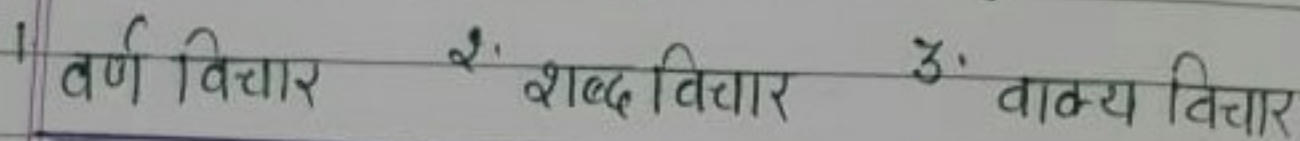 1 वर्ण विचार २. शब्द विचार 3. वाक्य विचार